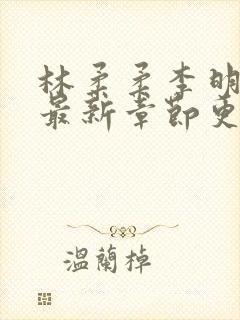 林柔柔李明
最新章節更
溫蘭掉